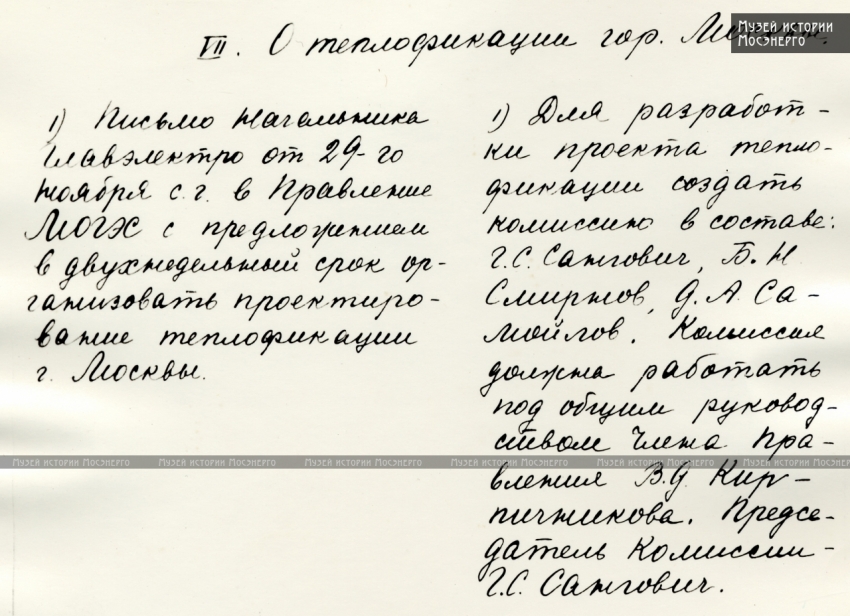 Музей истории
Мосэнерго
VII. О теплофикации гор. Москвы.
1) Письмо Начальника
Главэлектро от 29-го
ноября с.г. в Правление
МОГЭС с предложением
в двухнедельный срок ор-
ганизовать проектиро-
вание теплофикации
г. Москвы.
1) Для разработ-
ки проекта тепло-
фикации создать
комиссию в составе:
Г.С. Сангович, Б.Н
Смирнов, Д.А. Са-
мойлов. Комиссия
должна работать
под общим руковод-
ством Члена Пра-
вления В.Д. Кир-
пичникова. Предсе-
датель Комиссии -
Г.С. Сангович.
Музей истории Мосэнерго Музей истории Мосэнерго Музей истории Мосэнерго Музей истории Мосэнерго Музей истории Мосэнерго Музей истории Мосэнерго